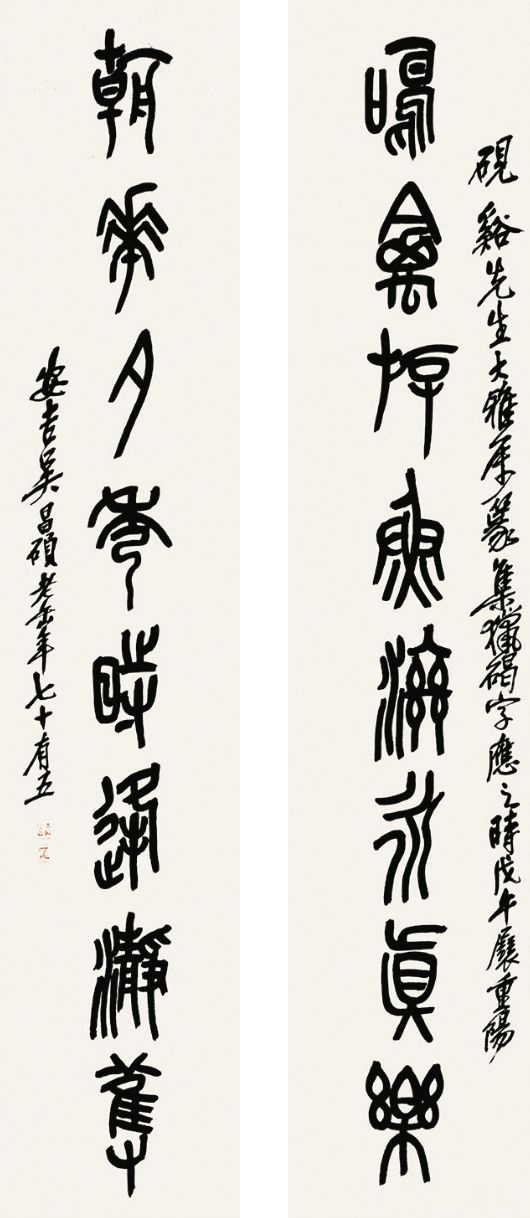 硯谿先生大雅屬篆集獵碣字應之時戊午展重陽
鳴禽斿魚滋永真樂
朝華夕秀時逢瀞
安吉吳昌碩老缶年七十有五